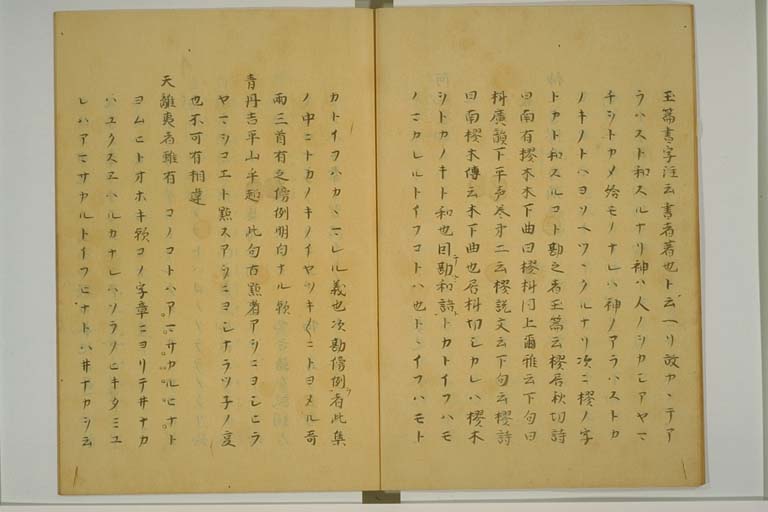 玉篇書字注云書者著也ト云ヘリ故カヽテア
ラハスト和スルナリ神ハ人ノシカシアヤマ
チシトカメ給モノナレハ神ノアラハストカ
ノキノトハヨソヘツヽクルナリ次ニ樛ノ字
トカト和スルコト勘之者玉篇云樛居秋切詩
曰南有樛木木下曲曰樛枓同上爾雅云下句曰
枓廣韻下平声巻第二云樛説文云下句云樛詩
曰南樛木傳云木下曲也居枓切シカレハ樛木
シトカノキト和也因勘和語トカトイフハモ
ノマカレルトイフコトハ也トヽイフハモト
カトイフハカヽマレル義也次勘傍例者此集
ノ中ニトカノキノイヤツキ〳〵ニトヨメル哥
兩三首有之傍例明白ナル歟
青丹吉平山乎超 此句古點者アシニヨシヒラ
ヤマシコエト點スアシニヨシナラツ子ノ度
也不可有相違
天離夷者雖有 コノコトハアマサカルヒナト
ヨムヒトオホキ歟コノ字章ニヨリテ井ナカ
ハユクスヱハルカナレハソラノヒキタミユ
レハアマサカルトイフヒナトハ井ナカシ云